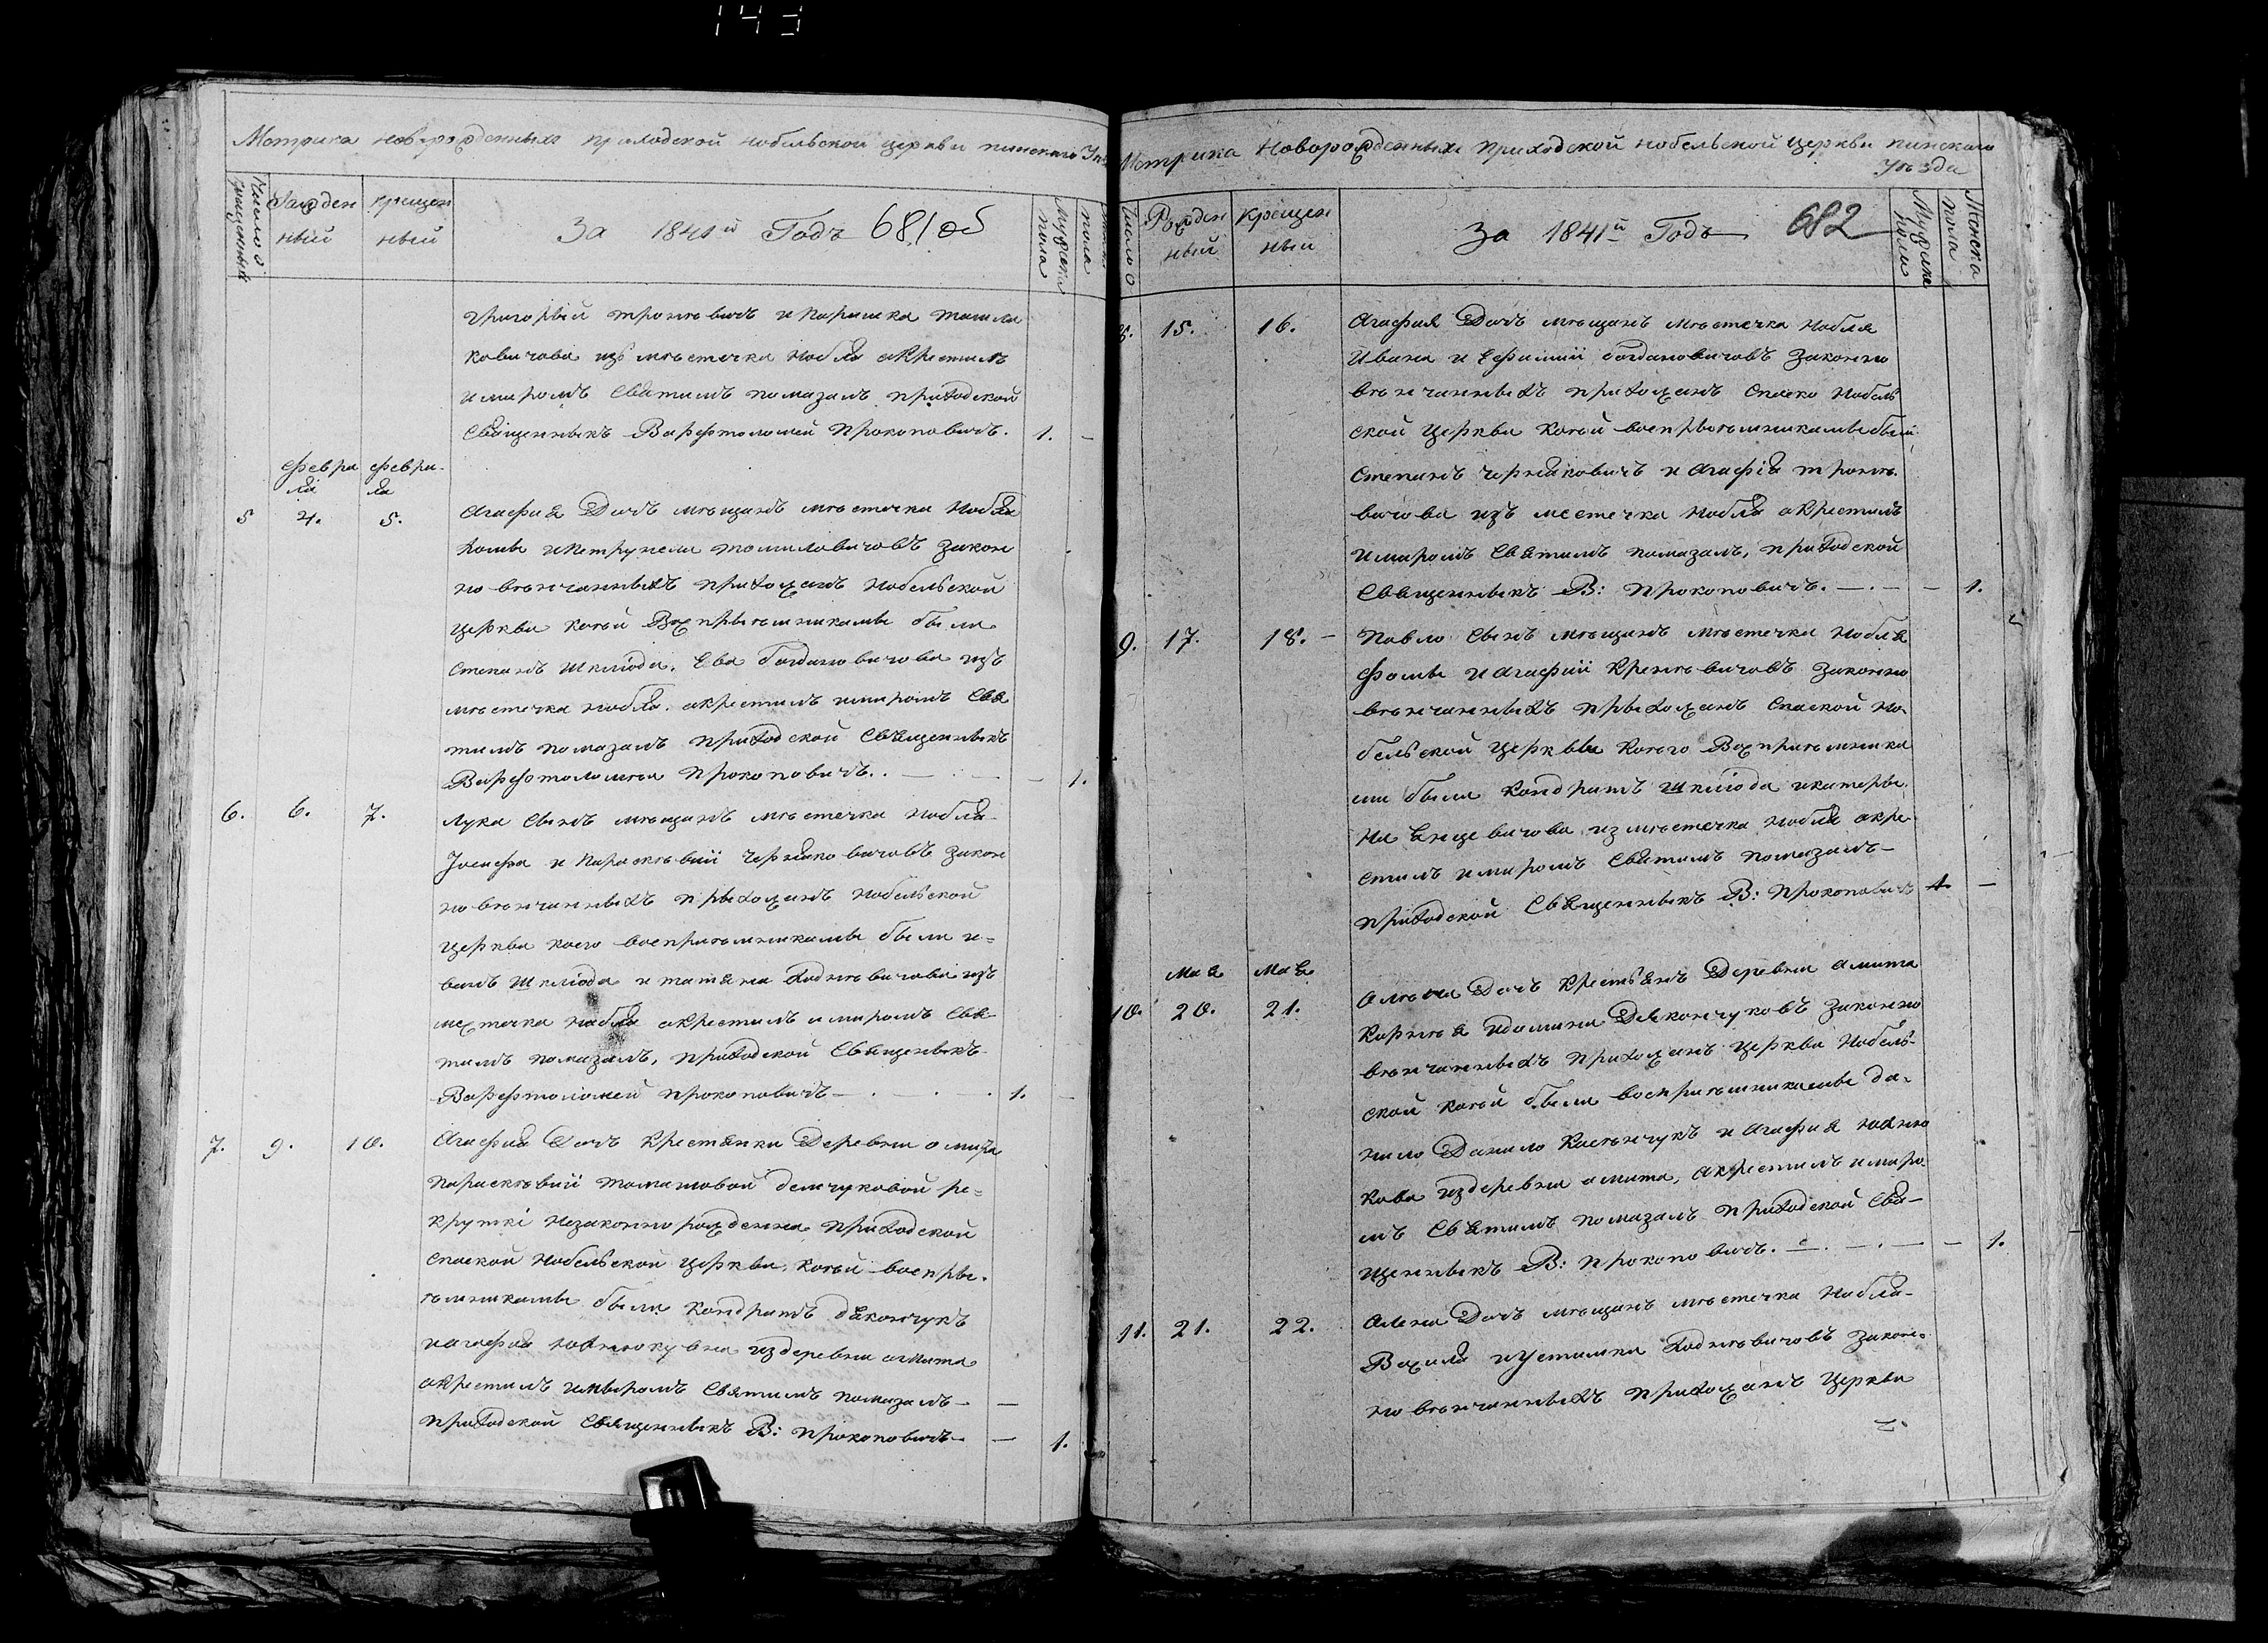 143
Метрика новорожденныхъ приходской нобельской церкви пинскаго
Число рожденныхъ
Рожден
ный
крещен
ный
За 1841й Годъ 681 об
Мужеска
пола
пола
григорій тронѣвичъ и Параска томила
ковичова изъ мѣстечка нобля окрестилъ
и миромъ Святимъ помазалъ приходской
Священныкъ Варфтоломей Прокоповичъ. 1. –
февра
ля
февра-
ля
5 4. 5. Агафия Дочъ мѣщанъ мѣстечка Нобля
хомы и петрунели томиловичовъ закон
но вѣнчанныхъ прихожанъ нобельской
церкви коей Возпрыѣмникамы были
степанъ шклюда. Ева богдановичова изъ
мѣстечка нобля. окрестилъ и миромъ Свя
тимъ помазалъ приходской Священныкъ
Варфтоломѣй прокоповичъ. – 1.
6. 6. 7. Лука Сынъ мѣщанъ мѣстечка нобля
Іосифа и Параскѣвіи черняковичовъ закон
но вѣнчанныхъ прыхожанъ нобельской
церкви коего восприѣмникамы были и=
ванъ шклюда и татяна ходнѣвичова изъ
мѣстечка нобля окрестилъ и миромъ Свя
тимъ помазалъ, приходской Священыкъ
Варфтоломей прокоповичъ – 1. –
7. 9. 10. Агафия Дочъ Крестянки Деревни омита
параскѣвіи томашовой демчуковой ре=
круткі незаконно рожденна приходской
спаской нобельской церкви, коей воспры.
ѣмникамы были кондратъ дякончукъ
и агафия юхнюкувна из деревни омита
окрестилъ и мыромъ Святимъ помазалъ –
приходской Священныкъ В: прокоповичъ – 1.
Метрика Новорожденныхъ приходской нобельской церкви пинскаго
Уѣзда
Число
Рожден
ный
Крещен
ный
За 1841й Годъ 682
Мужеска
пола
Женска
пола
8. 15. 16. Агафия Дочъ мѣщанъ мѣстечка нобля
Ивана и Ефиміи богдановичовъ законно
вѣнчанныхъ прихожанъ спаско нобель
ской церкви коей воспрыѣмникамы были
степанъ черняковичъ и агафія тронѣ.
вичова изъ местечка нобля окрестилъ
и миромъ Святимъ помазалъ, приходской
Священныкъ В: прокоповичъ. – 1.
9. 17. 18. – Павло Сынъ мѣщанъ мѣстечка нобля
фомы и агафіи Кренѣвичовъ законно
вѣнчанныхъ прыхожанъ спаской но
бельской церквы коего Возприѣмника
ми были кондратъ шклюда и катеры.
на янцевичова из мѣстечка нобля окре
стилъ и миромъ Святимъ помазалъ –
приходской Священныкъ В: прокоповичъ 1. –
Мая Мая
10. 20. 21. Олѣна Дочъ Крестьянъ Деревни омита
Корнѣя и домини Дякончуковъ законно
вѣнчанныхъ прихожанъ церкви нобель-
ской коей были восприѣмникамы да.
нило Данило Касьнчукъ и агафия юхню
кова из деревни омита, окрестилъ и миро.
мъ Святимъ помазалъ приходской Свя-
щенныкъ В: прокоповичъ. – 1.
11. 21. 22. Олена Дочъ мѣщанъ мѣстечка нобля –
Вазиля и устимки ходнѣвичовъ закон=
но вѣнчанныхъ прихожанъ церкви